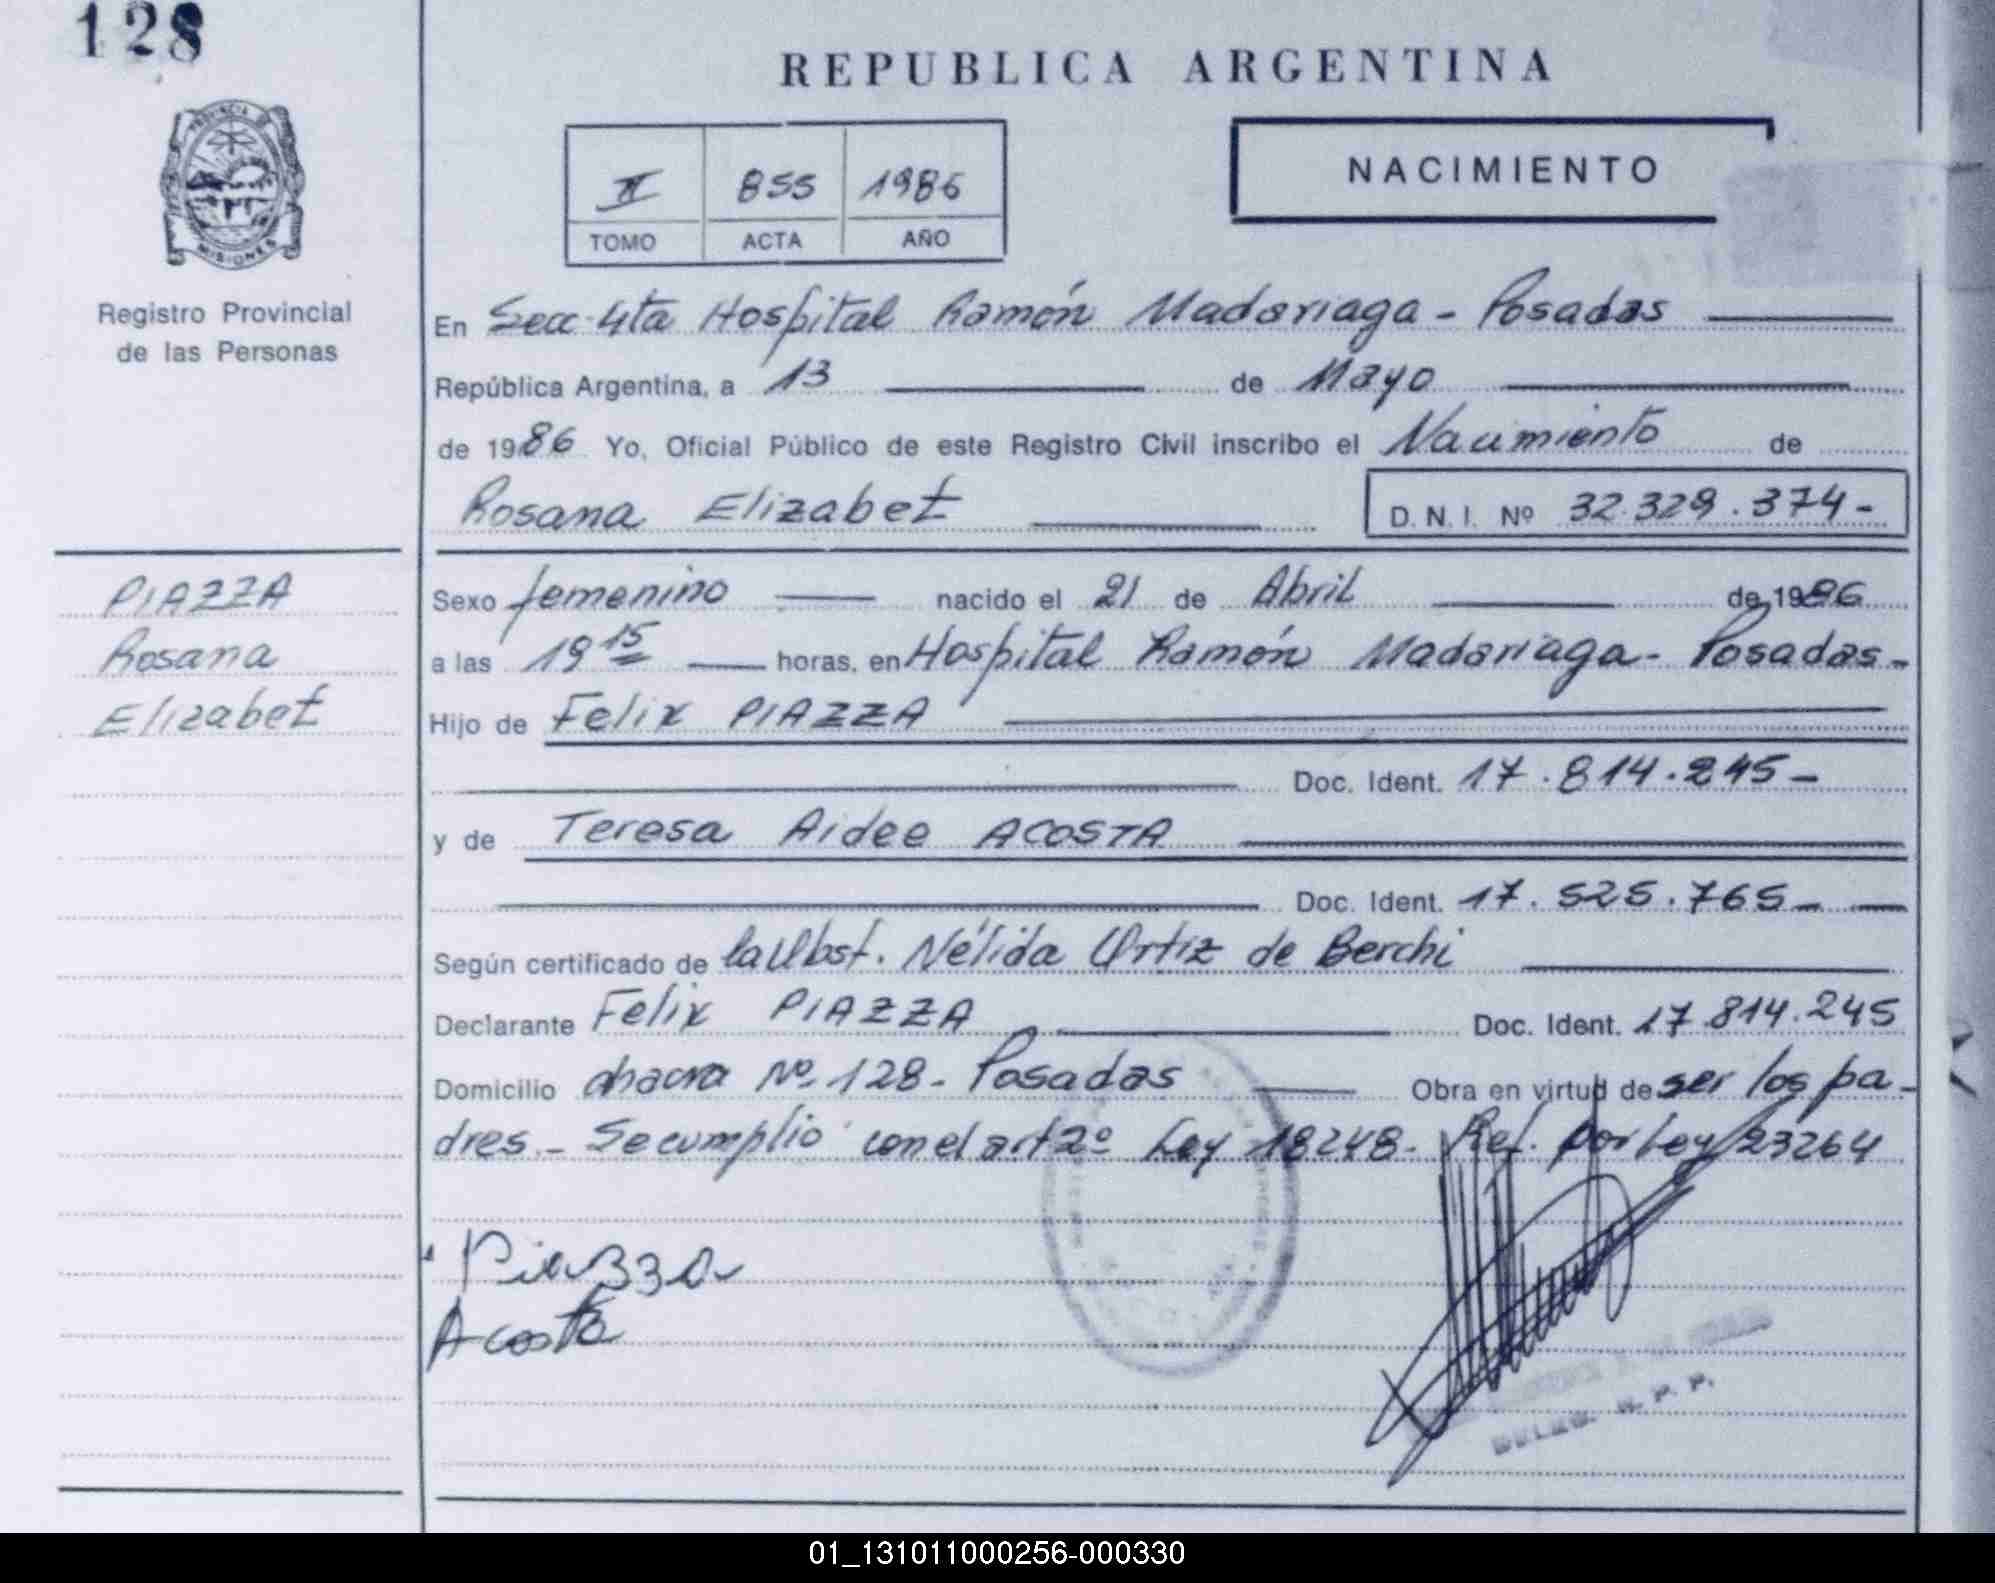 128
REPUBLICA ARGENTINA
PROVINCIA DE MISIONES
NACIMIENTO
II 855 1986
TOMO ACTA AÑO
Registro Provincial
de las Personas
En Secc. 4ta Hospital Ramón Madariaga - Posadas
República Argentina, a 13 de Mayo
de 1986 Yo, Oficial Público de este Registro Civil inscribo el Nacimiento de
Rosana Elizabet D.N.I. Nº 32.329.374-
PIAZZA
Rosana
Elizabet
Sexo femenino nacido el 21 de Abril de 1986
a las 19 15 horas, en Hospital Ramón Madariaga - Posadas -
Hijo de Felix PIAZZA
Doc. Ident. 17.814.245-
y de Teresa Aidee ACOSTA
Doc. Ident. 17.525.765-
Según certificado de la Obst. Nélida Ortiz de Berchi
Declarante Felix PIAZZA Doc. Ident. 17.814.245
Domicilio chacra Nº 128 - Posadas Obra en virtud de ser los pa-
dres.- Se cumplió con el art 2º Ley 18248- Ref. por Ley 23264
Piazza
Acosta
01_131011000256-000330